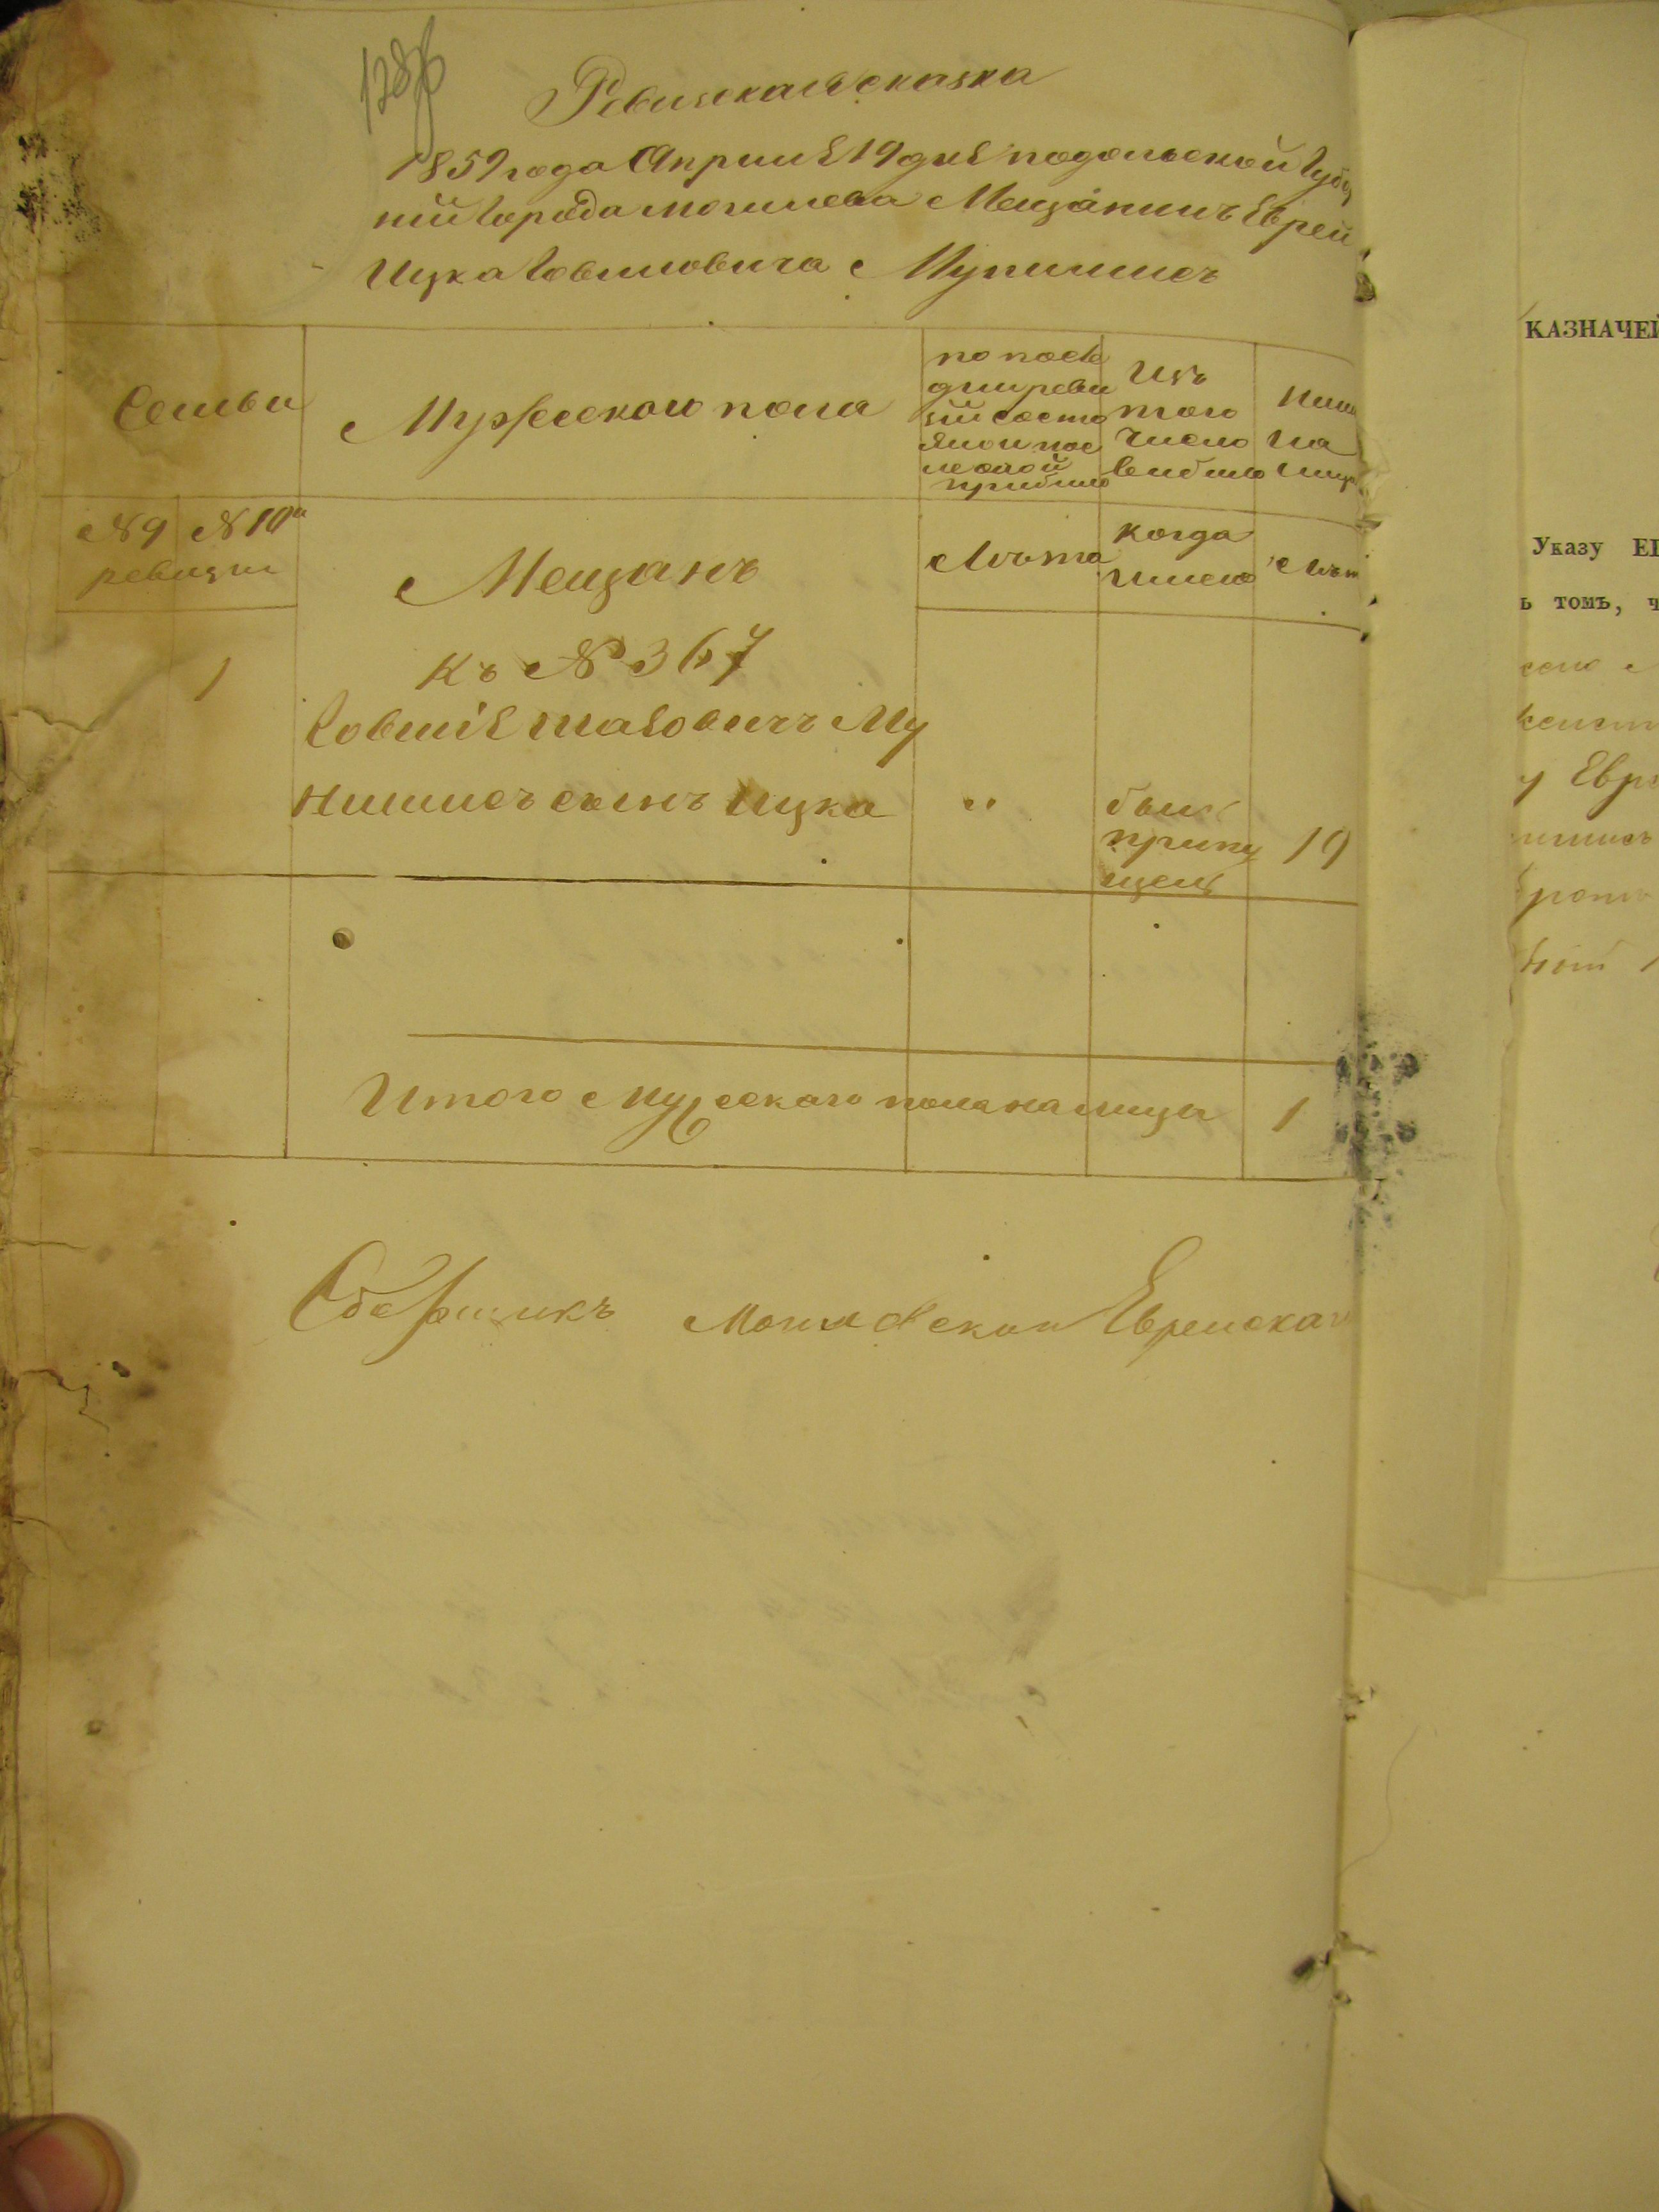 Ревизская сказка
1859 года Априля 19 дня подольской Губер
ний Города Могилева Мещанинъ Еврей
Ицка Говшиовича Мунишись
Семьи
Мужескаго пола
по после
дней реви
зіи состо
яло и пос
ле оной
прибыло
Изъ
того
число
выбыло
Ныне
на
лице
№ 9 № 10й
ревизии
Мещанъ
Лѣта
когда
имено
Лѣт
1
къ № 367
Говшія Маеовичъ Му
нишисъ сынъ Ицка
"
былъ
пропу
щенъ
19
Итого Мужескаго пола на лице 1
Сборщикъ Могилевской Еврейской
КАЗНАЧЕЙ
Указу ЕІ
ь томъ, ч
у Евре